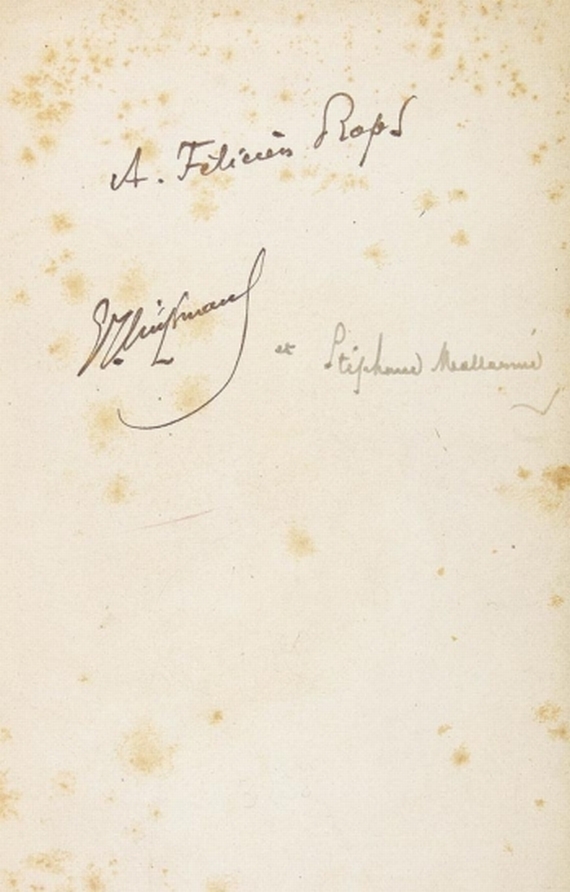 A. Félicien Rops
Huysmans
et Stéphane Mallarmé